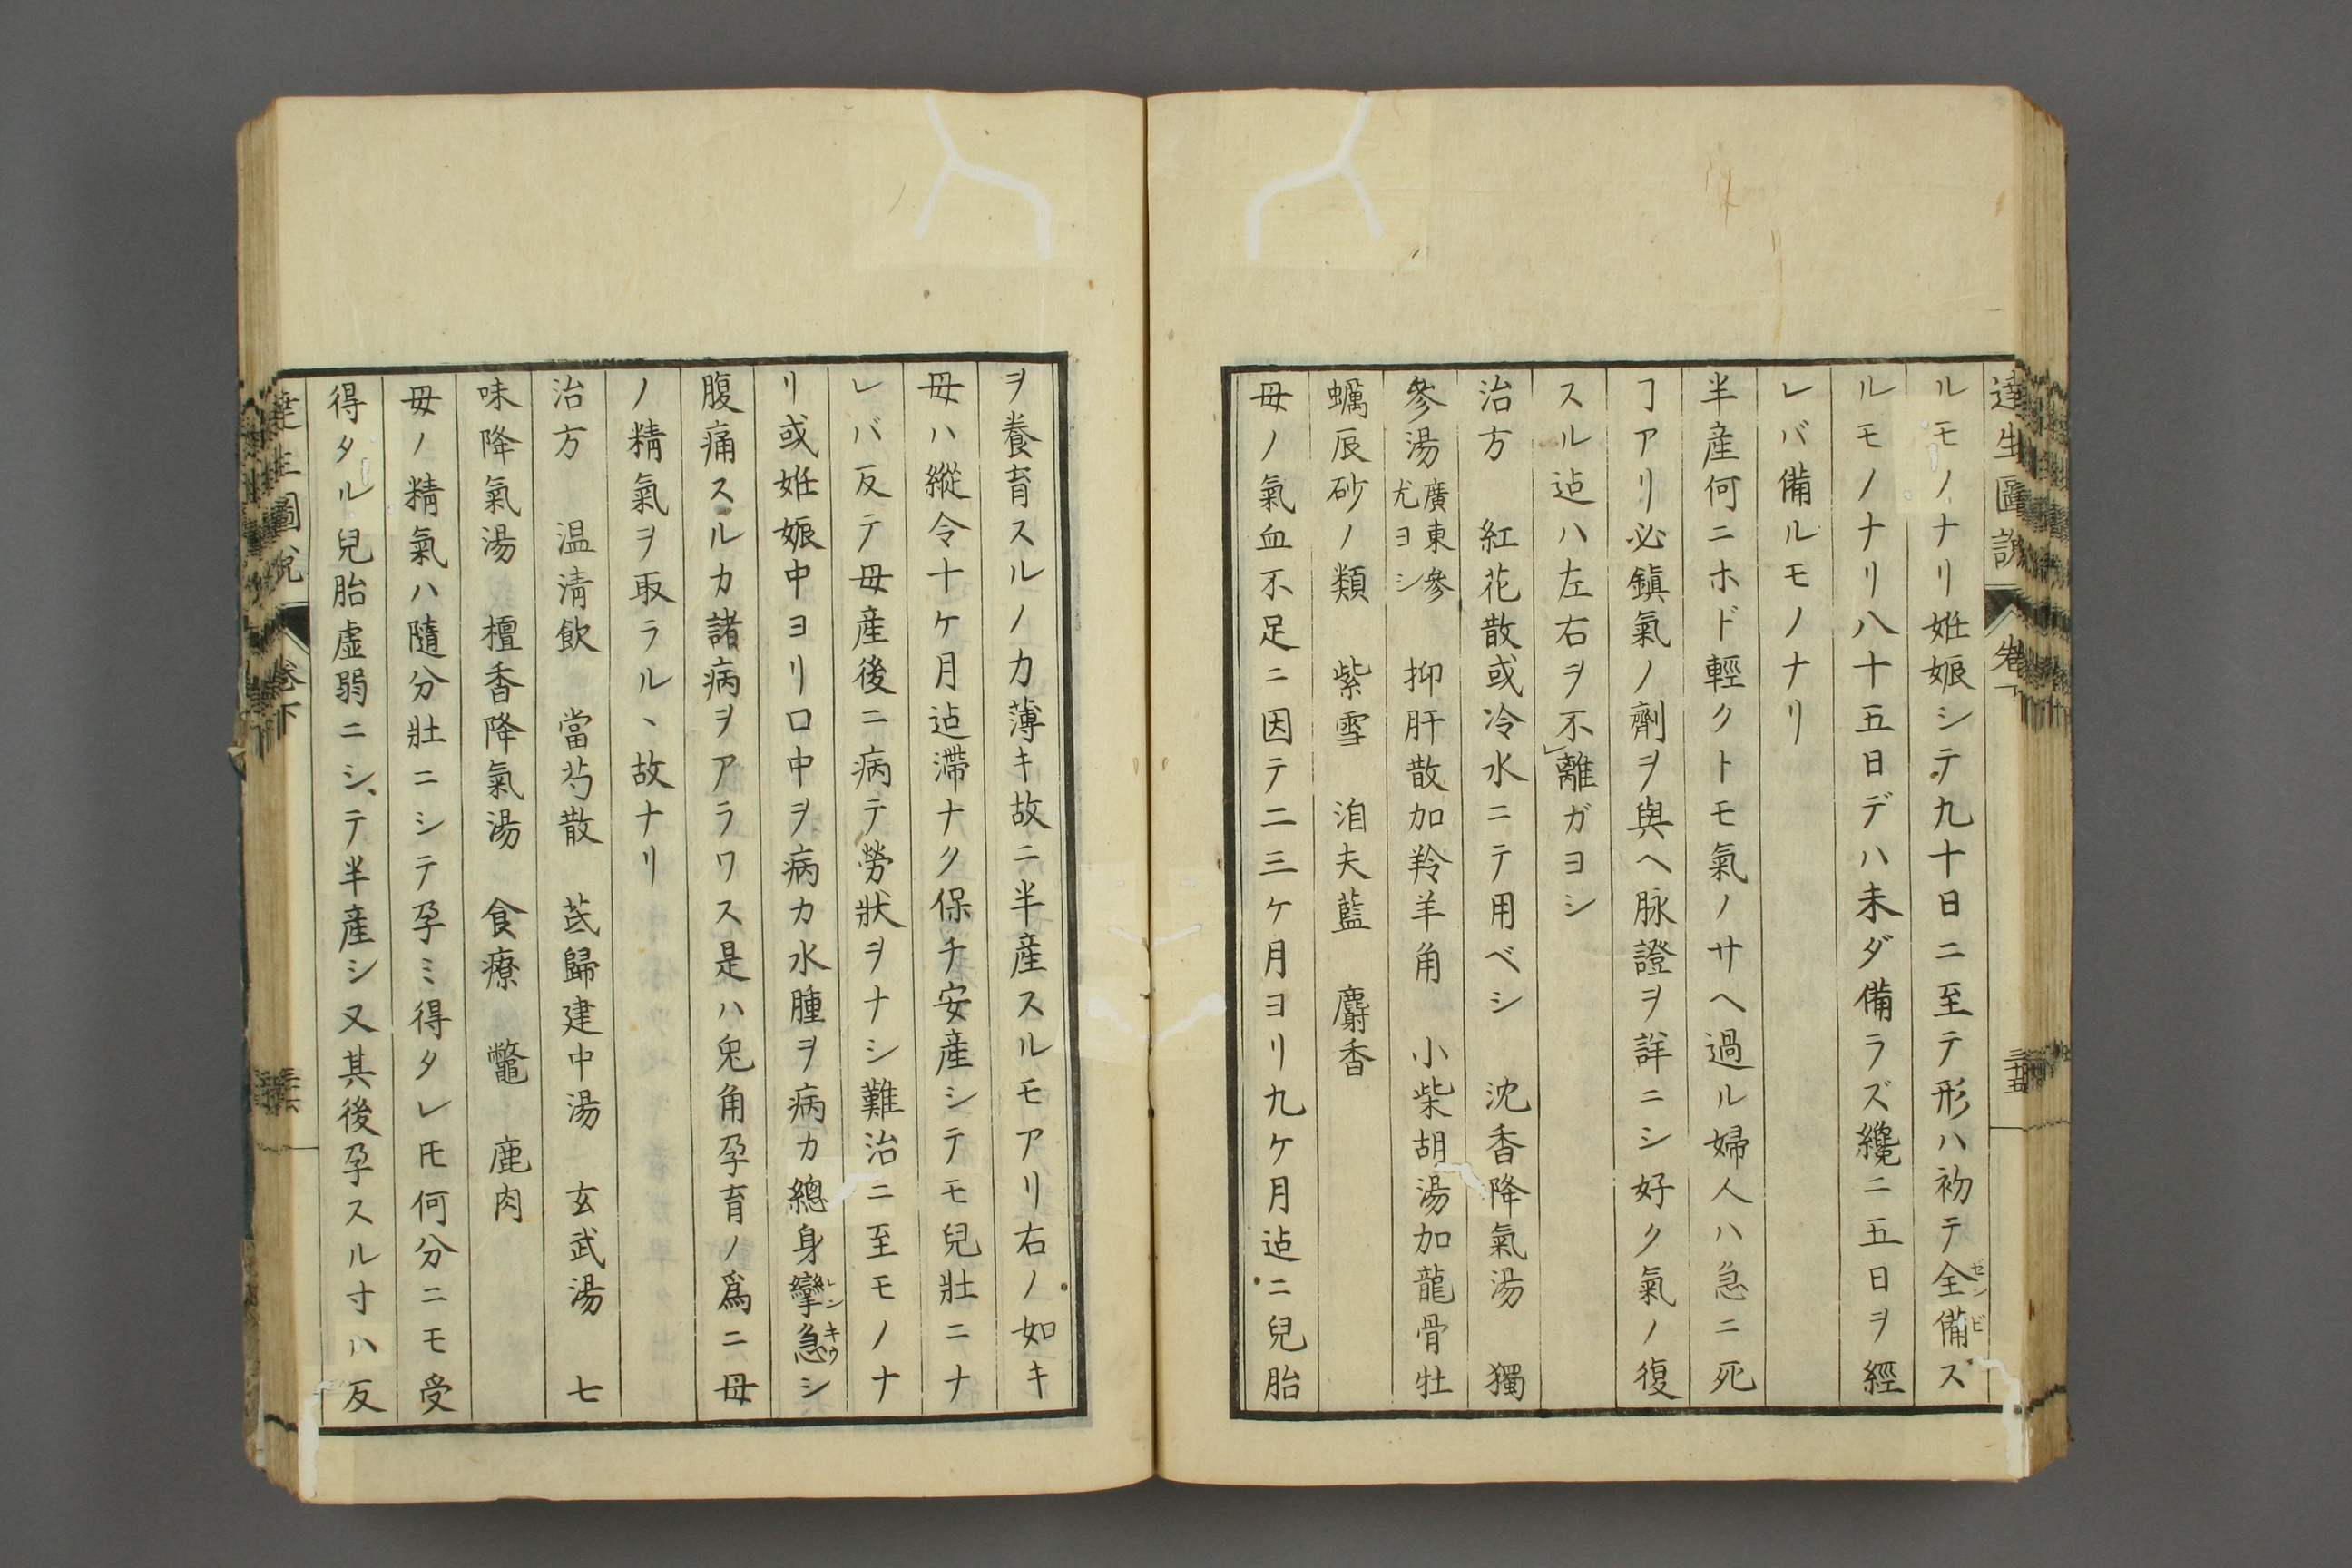 達生圖説 卷下 三十五
ルモノナリ姙娠シテ九十日ニ至テ形ハ初テ全備ス
ゼンビ
ルモノナリ八十五日デハ未ダ備ラズ纔ニ五日ヲ經
レバ備ルモノナリ
半産何ニホド輕クトモ氣ノサヘ過ル婦人ハ急ニ死
ヿアリ必鎭氣ノ劑ヲ與ヘ脉證ヲ詳ニシ好ク氣ノ復
スル迠ハ左右ヲ不離ガヨシ
治方 紅花散或冷水ニテ用ベシ 沈香降氣湯 獨
參湯 廣東參尤ヨシ 抑肝散加羚羊角 小柴胡湯加龍骨牡
蠣辰砂ノ類 紫雪 洎夫藍 麝香
母ノ氣血不足ニ因テ二三ケ月ヨリ九ケ月迠ニ兒胎
ヲ養育スルノカ薄キ故ニ半産スルモアリ右ノ如キ
母ハ縱令十ケ月迠滯ナク保チ安産シテモ兒壯ニナ
レバ反テ母産後ニ病テ勞狀ヲナシ難治ニ至モノナ
リ或姙娠中ヨリ口中ヲ病カ水腫ヲ病カ總身攣急シ
レンキウ
腹痛スルカ諸病ヲアラワス是ハ兎角孕育ノ爲ニ母
ノ精氣ヲ取ラルヽ故ナリ
治方 温淸飲 當芍散 芪歸建中湯 玄武湯 七
味降氣湯 檀香降氣湯 食療 鼈 鹿肉
母ノ精氣ハ隨分壯ニシテ孕ミ得タレ𪜈何分ニモ受
得タル兒胎虚弱ニシテ半産シ又其後孕スル寸ハ反
達生圖説 卷下 三十六